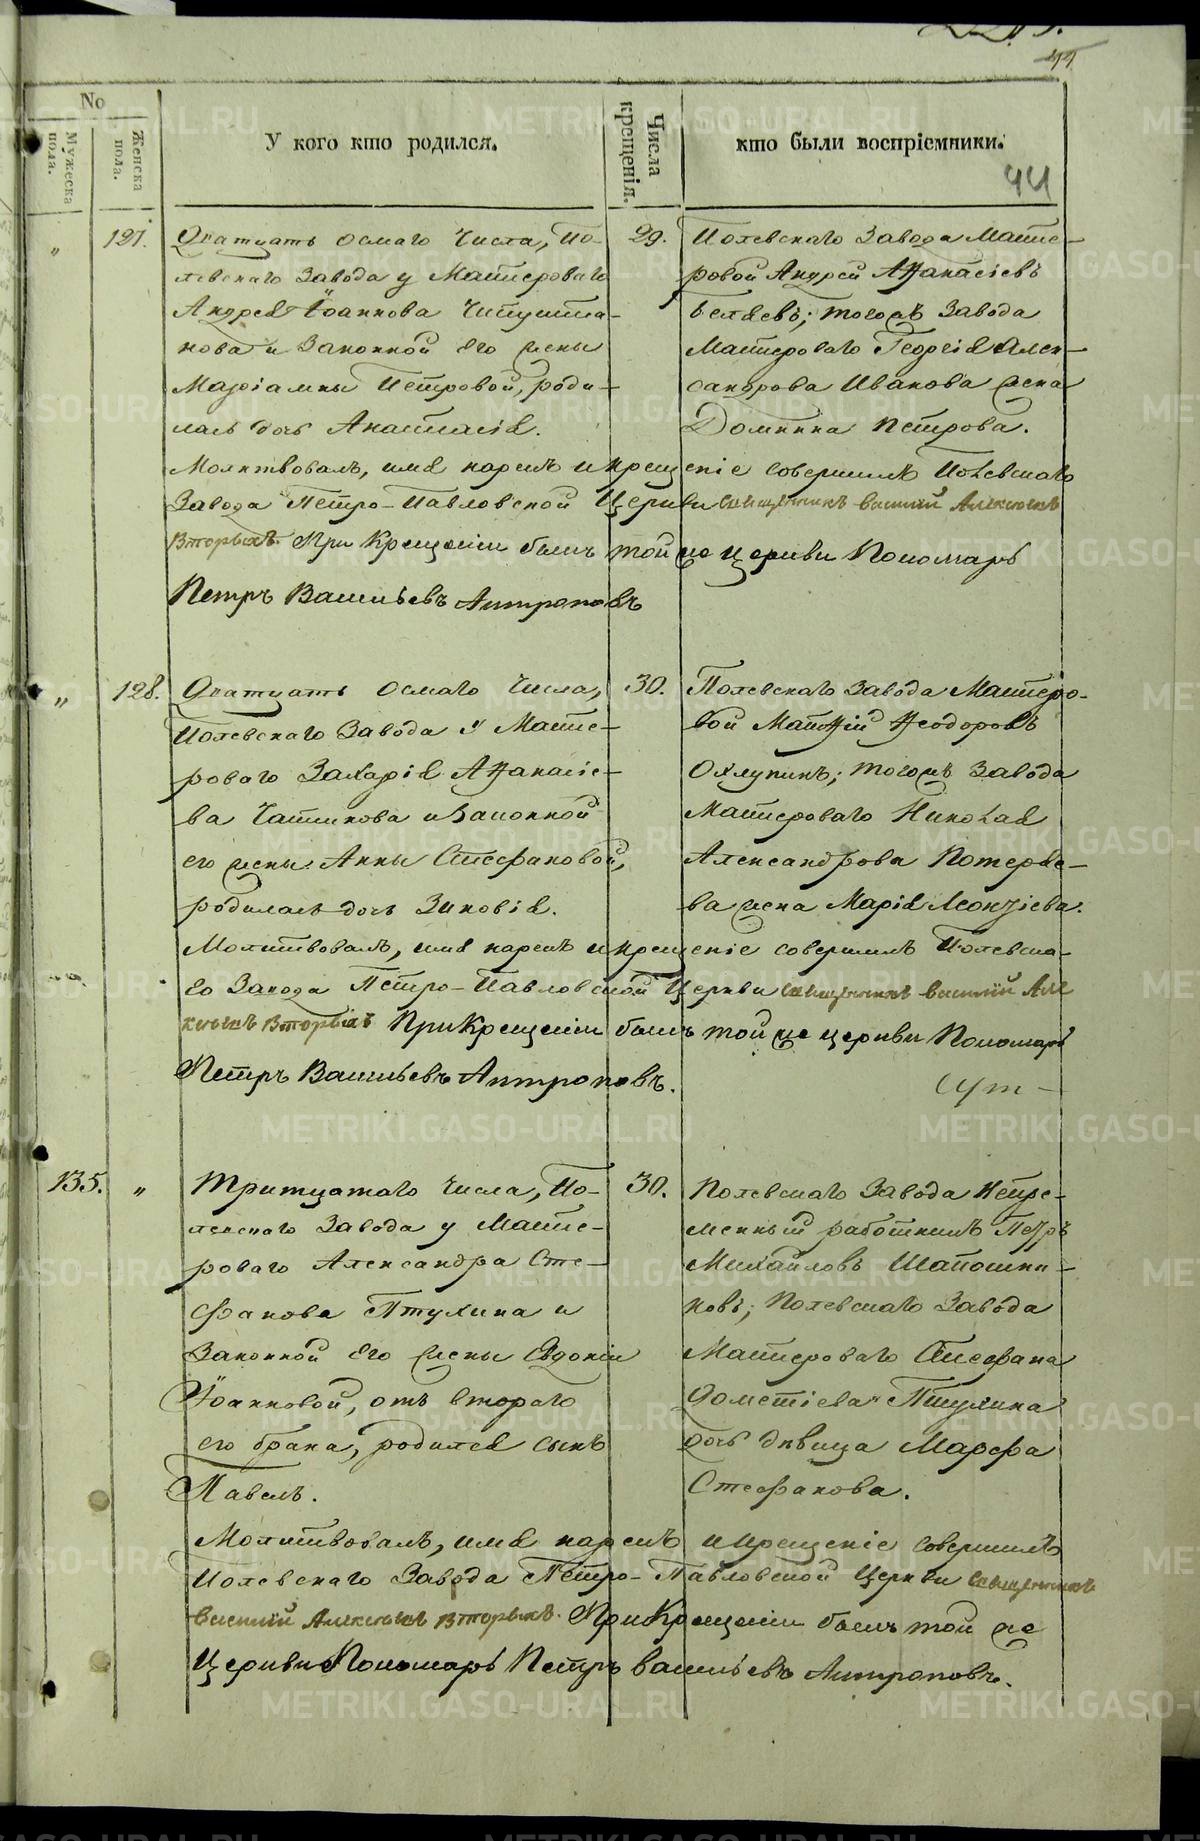 44
No
Мужеска пола.
Женска пола.
У кого кто родился.
Числа крещенія.
кто были воспріемники.
44
" 127. Дватцать осмаго числа, По-
левскаго Завода у Мастероваго
Андрея Іоаннова
нова и Законной его жены
Маріамны Петровой, роди-
лась дочь Анастасія.
29.
Полевскаго Завода Масте-
ровой Андрей Аѳанасіевъ
Беляевъ; тогожъ Завода
Мастероваго Георгія Алек-
сандрова Иванова жена
Домнина Петрова.
Молитвовалъ, имя нарекъ и крещеніе совершилъ Полевскаго
Завода Петро-Павловской Церкви священникъ Василій Алексѣевъ
Вторыхъ. При Крещеніи былъ той же церкви Пономарь
Петръ Васильевъ Антроповъ
" 128. Дватцать осмаго числа,
Полевскаго Завода у Масте-
роваго Захарія Аѳанасіе-
ва Чатликова и Законной
его жены Анны Стефановой,
родилась дочь Зиновія.
30.
Полевскаго Завода Мастеро-
вой Матѳій Ѳеодоровъ
Охлупинъ; тогожъ Завода
Мастероваго Николая
Александрова Потеряе-
ва жена Марія Леонтіева.
Молитвовалъ, имя нарекъ и крещеніе совершилъ Полевска-
го Завода Петро-Павловской Церкви священникъ Василій Але
ксѣевъ Вторыхъ При Крещеніи былъ той же церкви Пономарь
Петръ Васильевъ Антроповъ.
135. " Тритцатаго числа, По-
левскаго Завода у Масте-
роваго Александра Сте-
фанова Птухина и
Законной его жены Евдокіи
Іоанновой, отъ втораго
его брака, родился сынъ
Павелъ.
30.
Полевскаго Завода Непре-
менный работникъ Петръ
Михайловъ Шапошни-
ковъ; Полевскаго Завода
Мастероваго Стефана
Дометіева Птухина
дочь дѣвица Марфа
Стефанова.
Молитвовалъ, имя нарекъ и крещеніе совершилъ
Полевскаго Завода Петро-Павловской Церкви священникъ
Василій Алексѣевъ Вторыхъ. При Крещеніи былъ той же
Церкви Пономарь Петръ Васильевъ Антроповъ.
METRIKI.GASO-URAL.RU